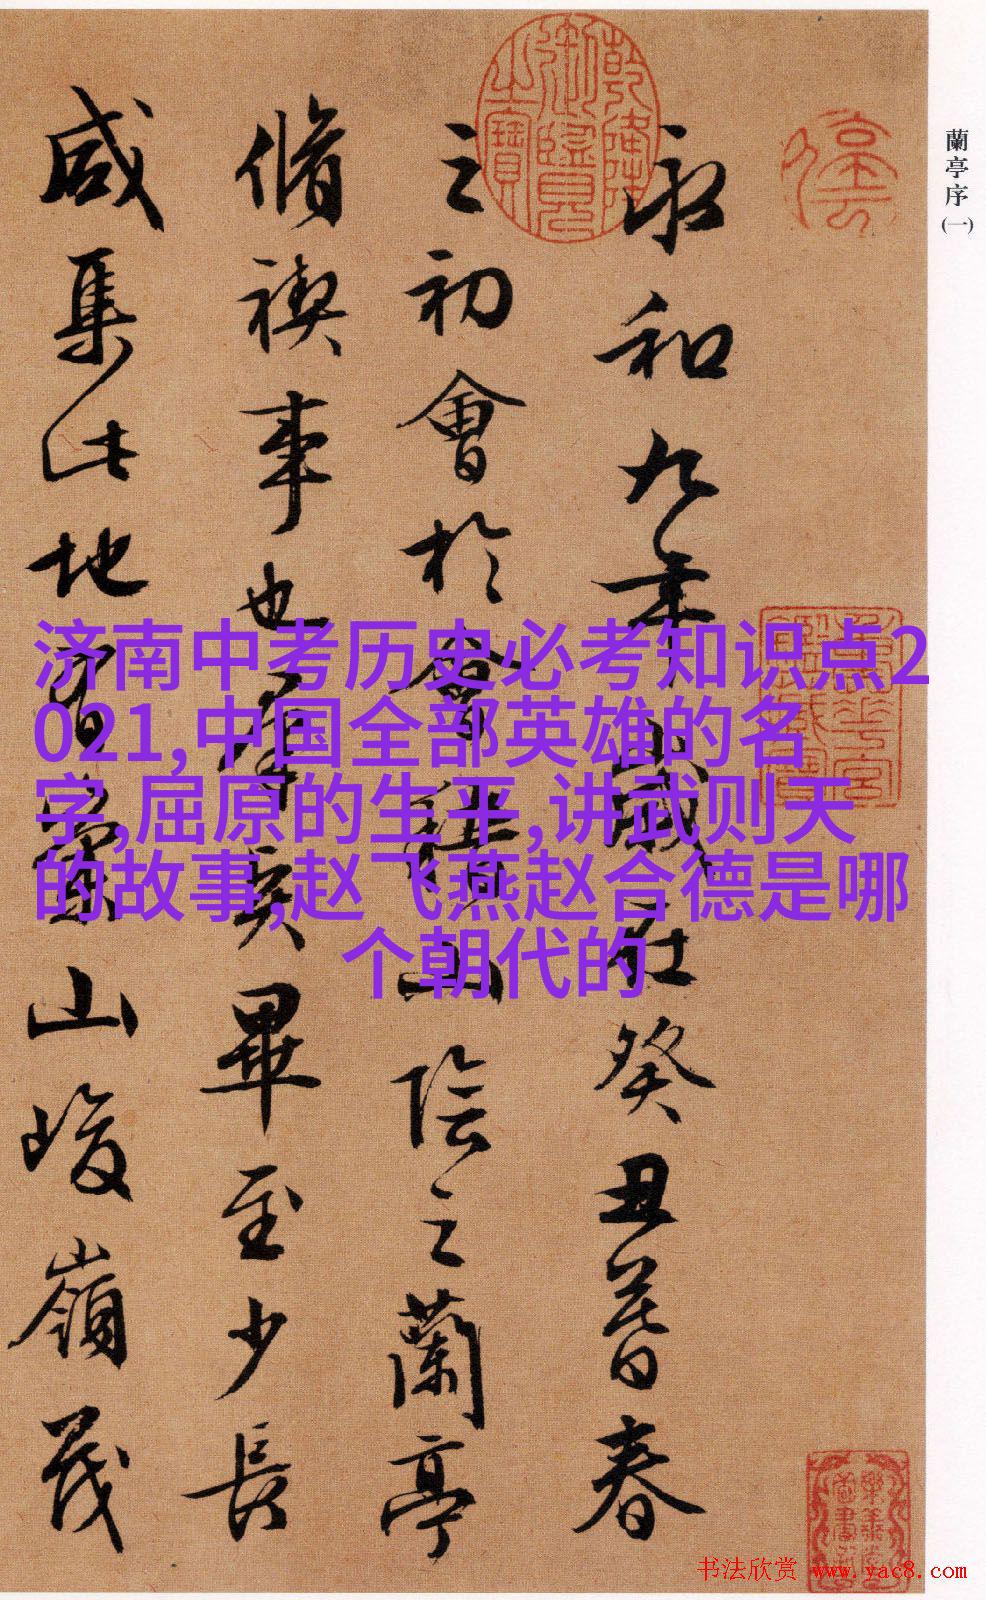 蘭亭序(一)
永和九年歲在癸丑暮春
之初會於會稽山陰之蘭亭
脩禊事也羣賢畢至少長
咸集此地有崇山峻嶺茂
乾隆御覽之寶
济南中考历史必考知识点2
021,中国全部英雄的名
字,屈原的生平,讲武则天
的故事,赵飞燕赵合德是哪
个朝代的
书法欣赏 www.yac8.com